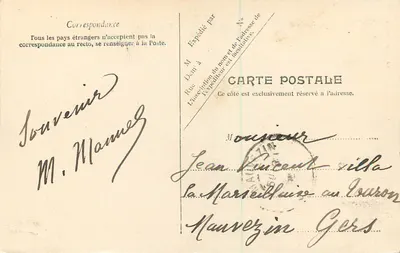 Correspondance
Tous les pays étrangers n'acceptent pas la
correspondance au recto, se renseigner à la Poste.
Expédié par
M
Dom à
Rue N°
L'inscription du nom et de l'adresse de
l'expéditeur est facultative.
CARTE POSTALE
Ce côté est exclusivement réservé à l'adresse.
Souvenir
M. Mannel
Monsieur
Jean Vincent villa
la Marseillaise au Touron
Mauvezin Gers